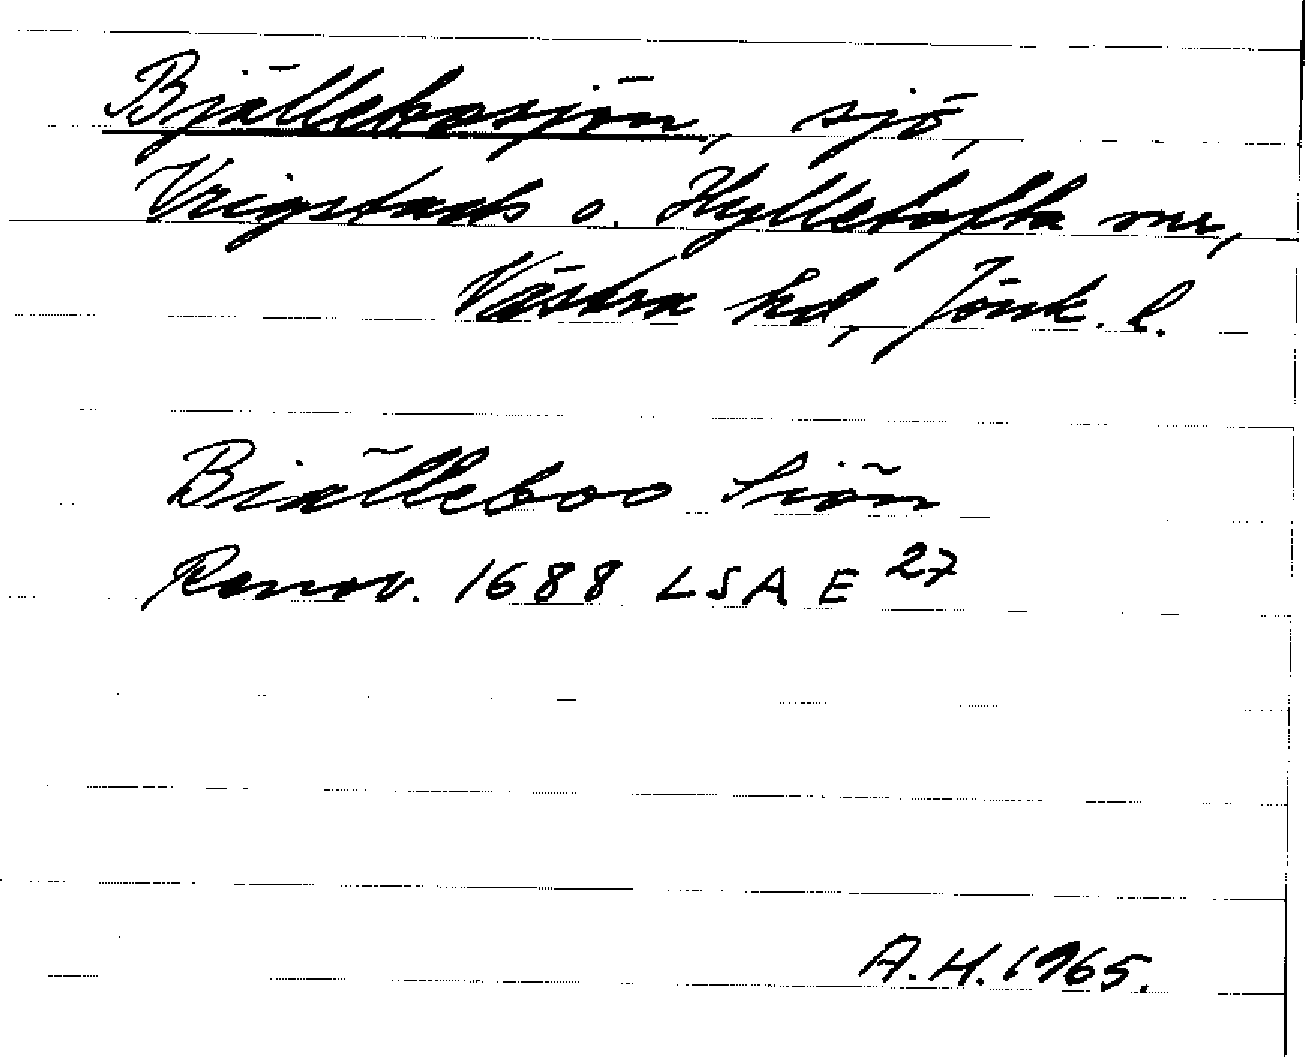 Bjällebosjön, sjö,
Vrigstads o. Hylletofta snr,
Västra hd, Jönk. l.
Biälleboo Siön
Renov. 1688 LSA E 27
A.H. 1965.